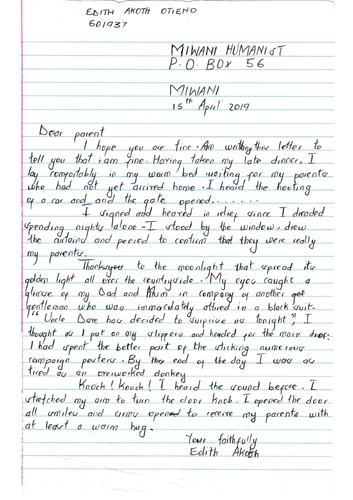 EDITH AKOTH OTIENO
601937
MIWANI HUMANIST
P.O. BOX 56
MIWANI
15th April 2019
Dear parent
I hope you are fine. Am writing this letter to
tell you that i am fine. Having taken my late dinner, I
lay comfortably in my warm bed waiting for my parents
who had not yet arrived home. I heard the hooting
of a car and and the gate opened.......
I signed and heared in relief since I dreaded
spending nights alone. I stood by the window, drew
the curtains and peered to confirm that they were really
my parents.
Thankyou to the moonlight that spread its
golden light all over the countryside. My eyes caught a
glimse of my Dad and Mum in company of another
gentleman who was immaculately attired in a black suit.
"Uncle Dome has decided to surprise us tonight", I
thought as I put on my slippers and headed for the main door.
I had spent the better part of the sticking numerous
campaign posters. By the end of the day I was as
tired as an overworked donkey
Knock! Knock! I heard the sound before. I
stretched my arm to turn the door knob. I opened the door
all smiles and arms opened to receive my parents with
at least a warm hug.
Your faithfully
Edith Akoth